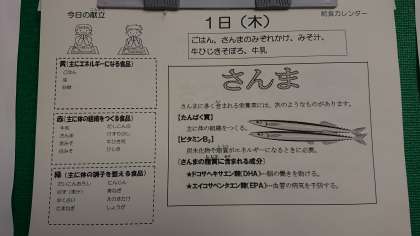 今日の献立
給食カレンダー
1日(木)
ごはん、さんまのみぞれかけ、みそ汁、
牛ひじきそぼろ、牛乳
黄(主にエネルギーになる食品)
ごはん
砂糖
赤(主に体の組織をつくる食品)
牛乳
さんま
ひじき
緑(主に体の調子を整える食品)
にんじん
しょうが
さんま
さんまに多くふくまれる栄養素には、次のようなものがあります。
【たんぱく質】
主に体の組織をつくる。
【ビタミンB₂】
炭水化物や脂質がエネルギーになるときに必要。
【さんまの脂質に含まれる成分】
★ドコサヘキサエン酸(DHA)…脳の働きを助ける。
★エイコサペンタエン酸(EPA)…血管の病気を予防する。